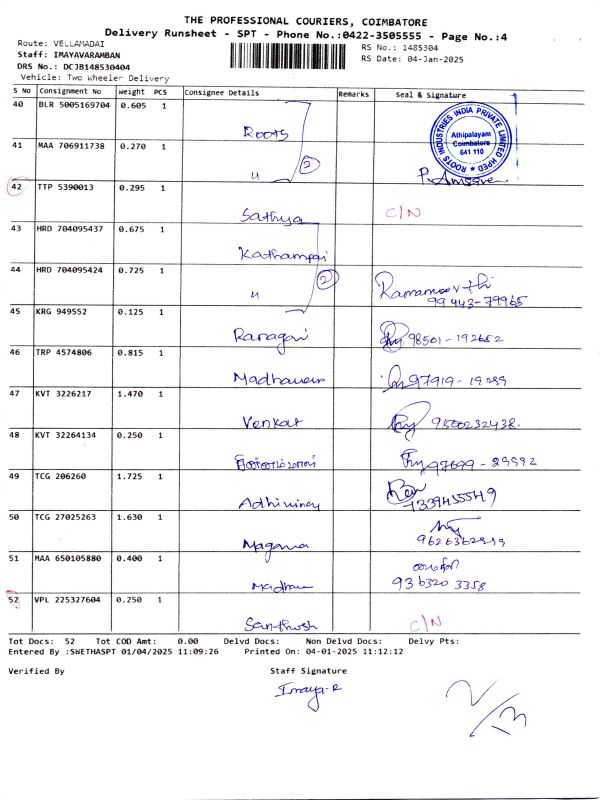 THE PROFESSIONAL COURIERS, COIMBATORE
Delivery Runsheet - SPT - Phone No.:0422-3505555 - Page No.:4
Route: VELLAMADAI
RS No.: 1485304
Staff: IMAYAVARAMBAN
RS Date: 04-Jan-2025
DRS No.: DCJB148530404
Vehicle: Two Wheeler Delivery
S No Consignment No Weight PCS Consignee Details Remarks Seal & Signature
40 BLR 5005169704 0.605 1 Roots
ROOTS INDUSTRIES INDIA PRIVATE LIMITED
Athipalayam
Coimbatore
641 110
41 MAA 706911738 0.270 1 " 2
42 TTP 5390013 0.295 1 Sathya C/N
43 HRD 704095437 0.675 1
44 HRD 704095424 0.725 1 " 2 Ramamoorthi
99443-79965
45 KRG 949552 0.125 1 98501-192652
46 TRP 4574806 0.815 1
47 KVT 3226217 1.470 1 Venkat 9500232438.
48 KVT 32264134 0.250 1
49 TCG 206260 1.725 1 Adhivinay
50 TCG 27025263 1.630 1
51 MAA 650105880 0.400 1 936320 3358
52 VPL 225327604 0.250 1 Santhosh C/N
Tot Docs: 52 Tot COD Amt: 0.00 Delvd Docs: Non Delvd Docs: Delvy Pts:
Entered By :SWETHASPT 01/04/2025 11:09:26 Printed On: 04-01-2025 11:12:12
Verified By Staff Signature
Imaya.R